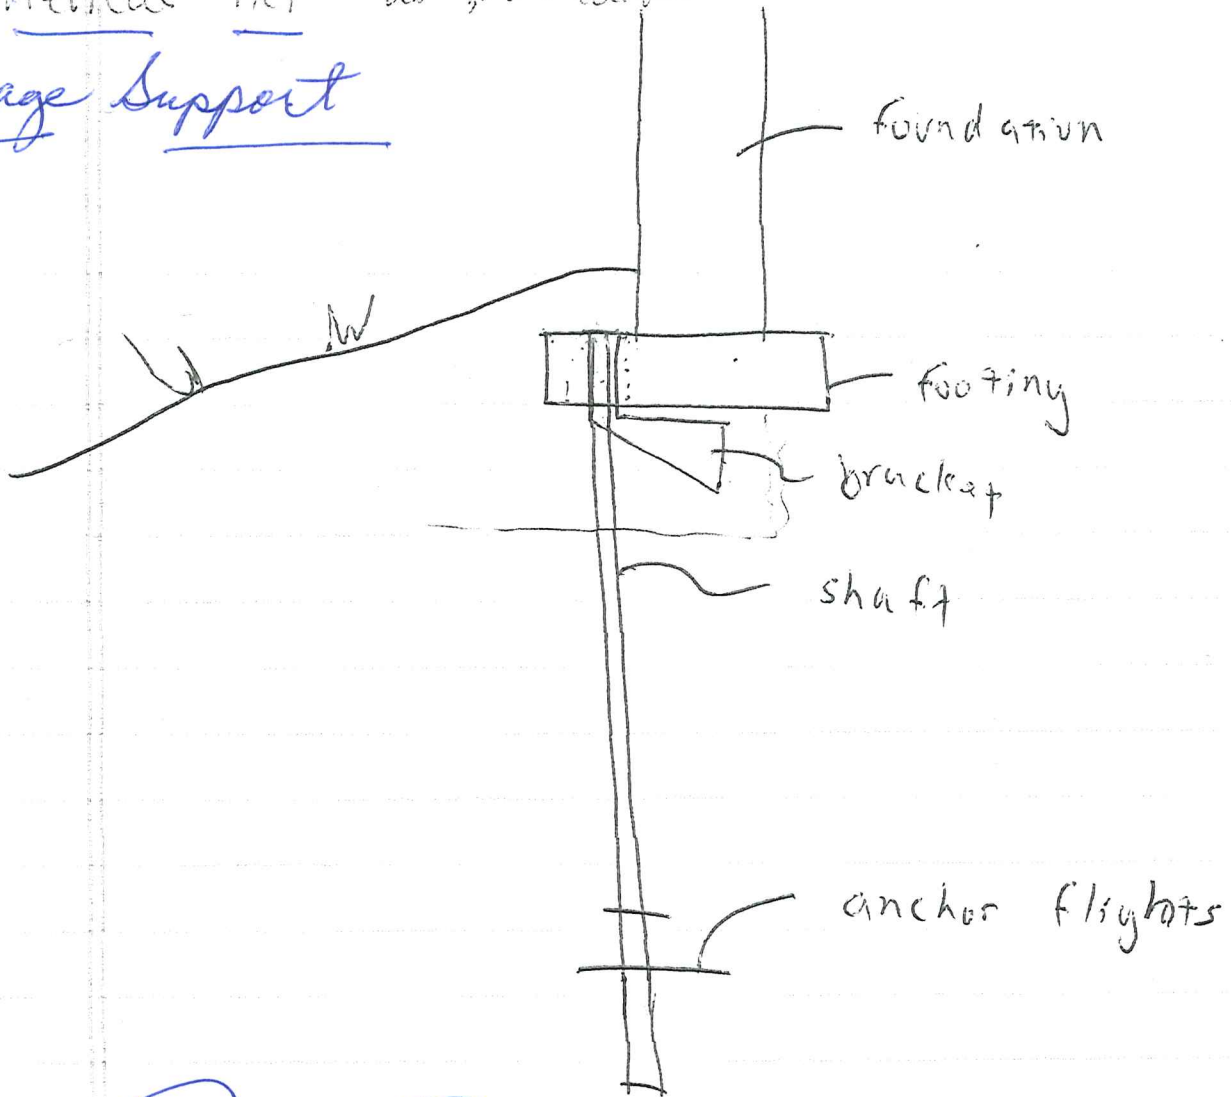 age Support
foundation
footing
bracket
shaft
anchor flights